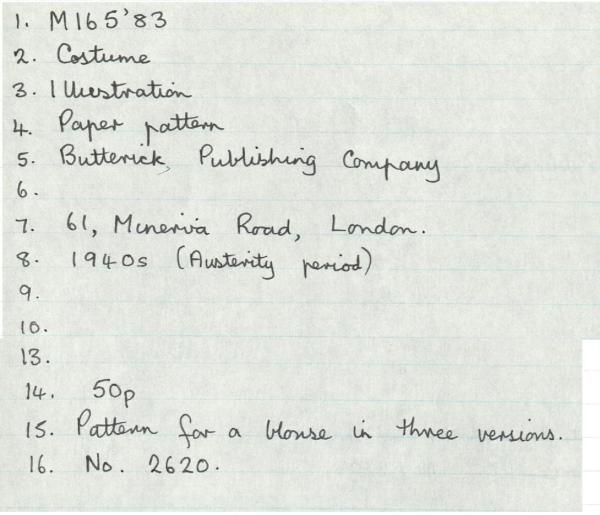 1. M165'83
2. Costume
3. Illustration
4. Paper pattern
5. Butterick, Publishing Company
6.
7. 61, Minerva Road, London.
8. 1940s (Austerity period)
9.
10.
13.
14. 50p
15. Pattern for a blouse in three versions.
16. No. 2620.